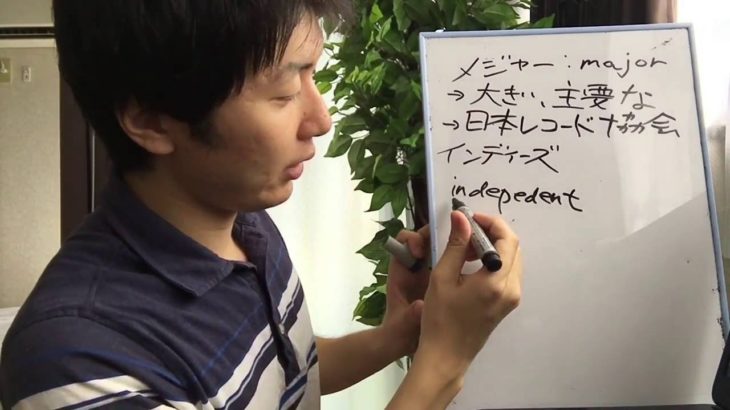 メジャー：major
→大きい、主要な
→日本レコード協会
インディーズ
indepedent